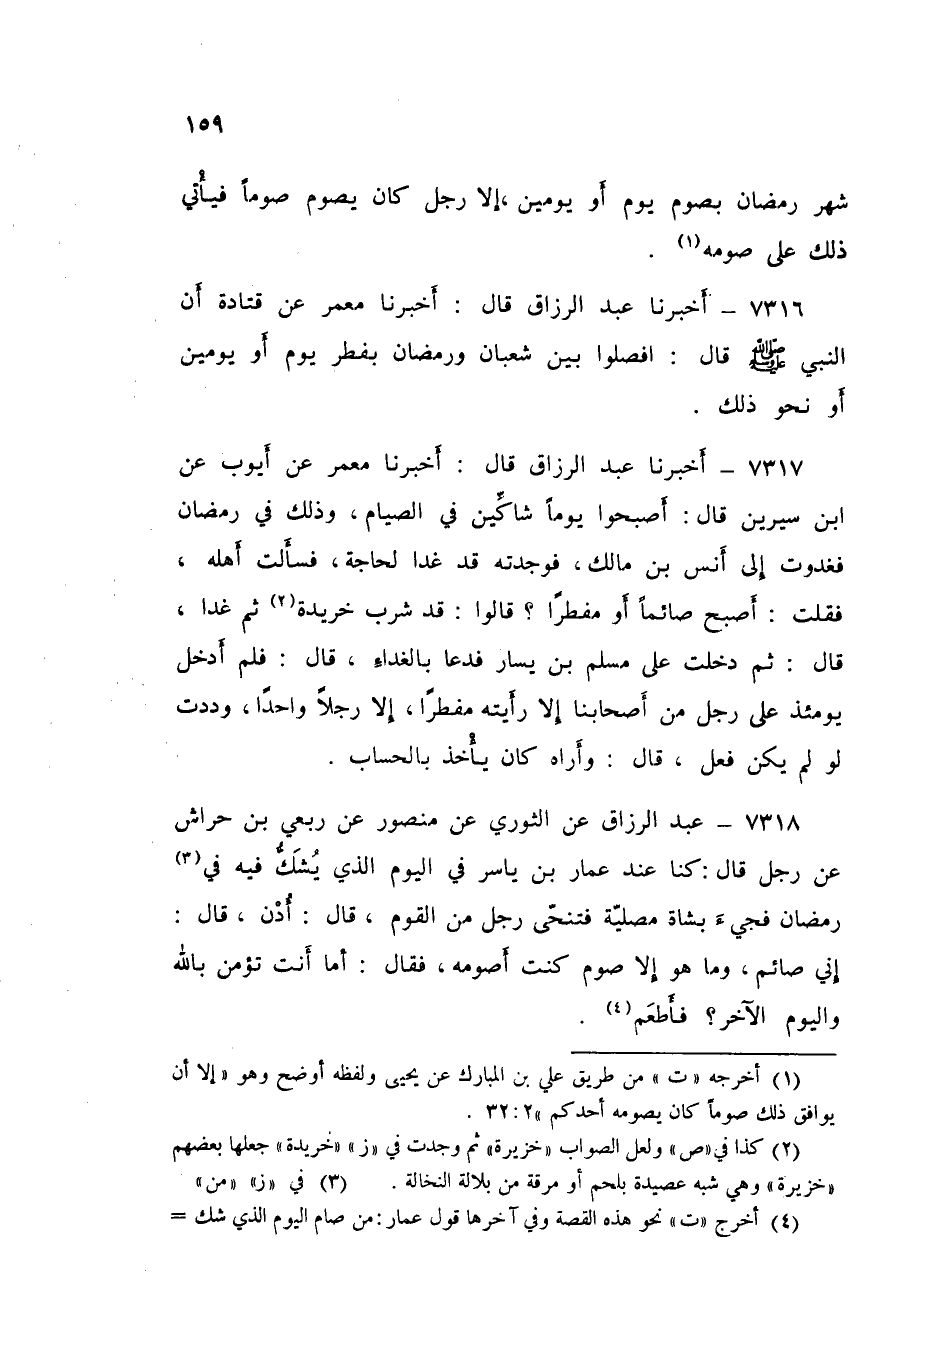 ١٥٩
شهر رمضان بصوم يوم أو يومين ،إلا رجل كان يصوم صوماً فيأتي
ذلك على صومه(١) .
٧٣١٦ – أخبرنا عبد الرزاق قال : أخبرنا معمر عن قتادة أن
النبي ﷺ قال : افصلوا بين شعبان ورمضان بفطر يوم أو يومين
أو نحو ذلك .
٧٣١٧ – أخبرنا عبد الرزاق قال : أخبرنا معمر عن أيوب عن
ابن سيرين قال : أصبحوا يوماً شاكِّين في الصيام ، وذلك في رمضان
فغدوت إلى أنس بن مالك ، فوجدته قد غدا لحاجة ، فسألت أهله ،
فقلت : أصبح صائماً أو مفطرًا ؟ قالوا : قد شرب خريدة(٢) ثم غدا ،
قال : ثم دخلت على مسلم بن يسار فدعا بالغداء ، قال : فلم أدخل
يومئذ على رجل من أصحابنا إلا رأيته مفطرًا ، إلا رجلاً واحدًا ، وددت
لو لم يكن فعل ، قال : وأراه كان يأخذ بالحساب .
٧٣١٨ – عبد الرزاق عن الثوري عن منصور عن ربعي بن حراش
عن رجل قال : كنا عند عمار بن ياسر في اليوم الذي يُشَكُّ فيه في(٣)
رمضان فجيء بشاة مصليّة فتنحّى رجل من القوم ، قال : أُدْن ، قال :
إني صائم ، وما هو إلا صوم كنت أصومه ، فقال : أما أنت تؤمن بالله
واليوم الآخر ؟ فأَطعَم(٤) .
(١) أخرجه «ت» من طريق علي بن المبارك عن يحيى ولفظه أوضح وهو «إلا أن
يوافق ذلك صوماً كان يصومه أحدكم» ٢ : ٣٢ .
(٢) كذا في «ص» ولعل الصواب «خزيرة» ثم وجدت في «ز» «خريدة» جعلها بعضهم
«خزيرة» وهي شبه عصيدة بلحم أو مرقة من بلالة النخالة . (٣) في «ز» «من»
(٤) أخرج «ت» نحو هذه القصة وفي آخرها قول عمار : من صام اليوم الذي شك =